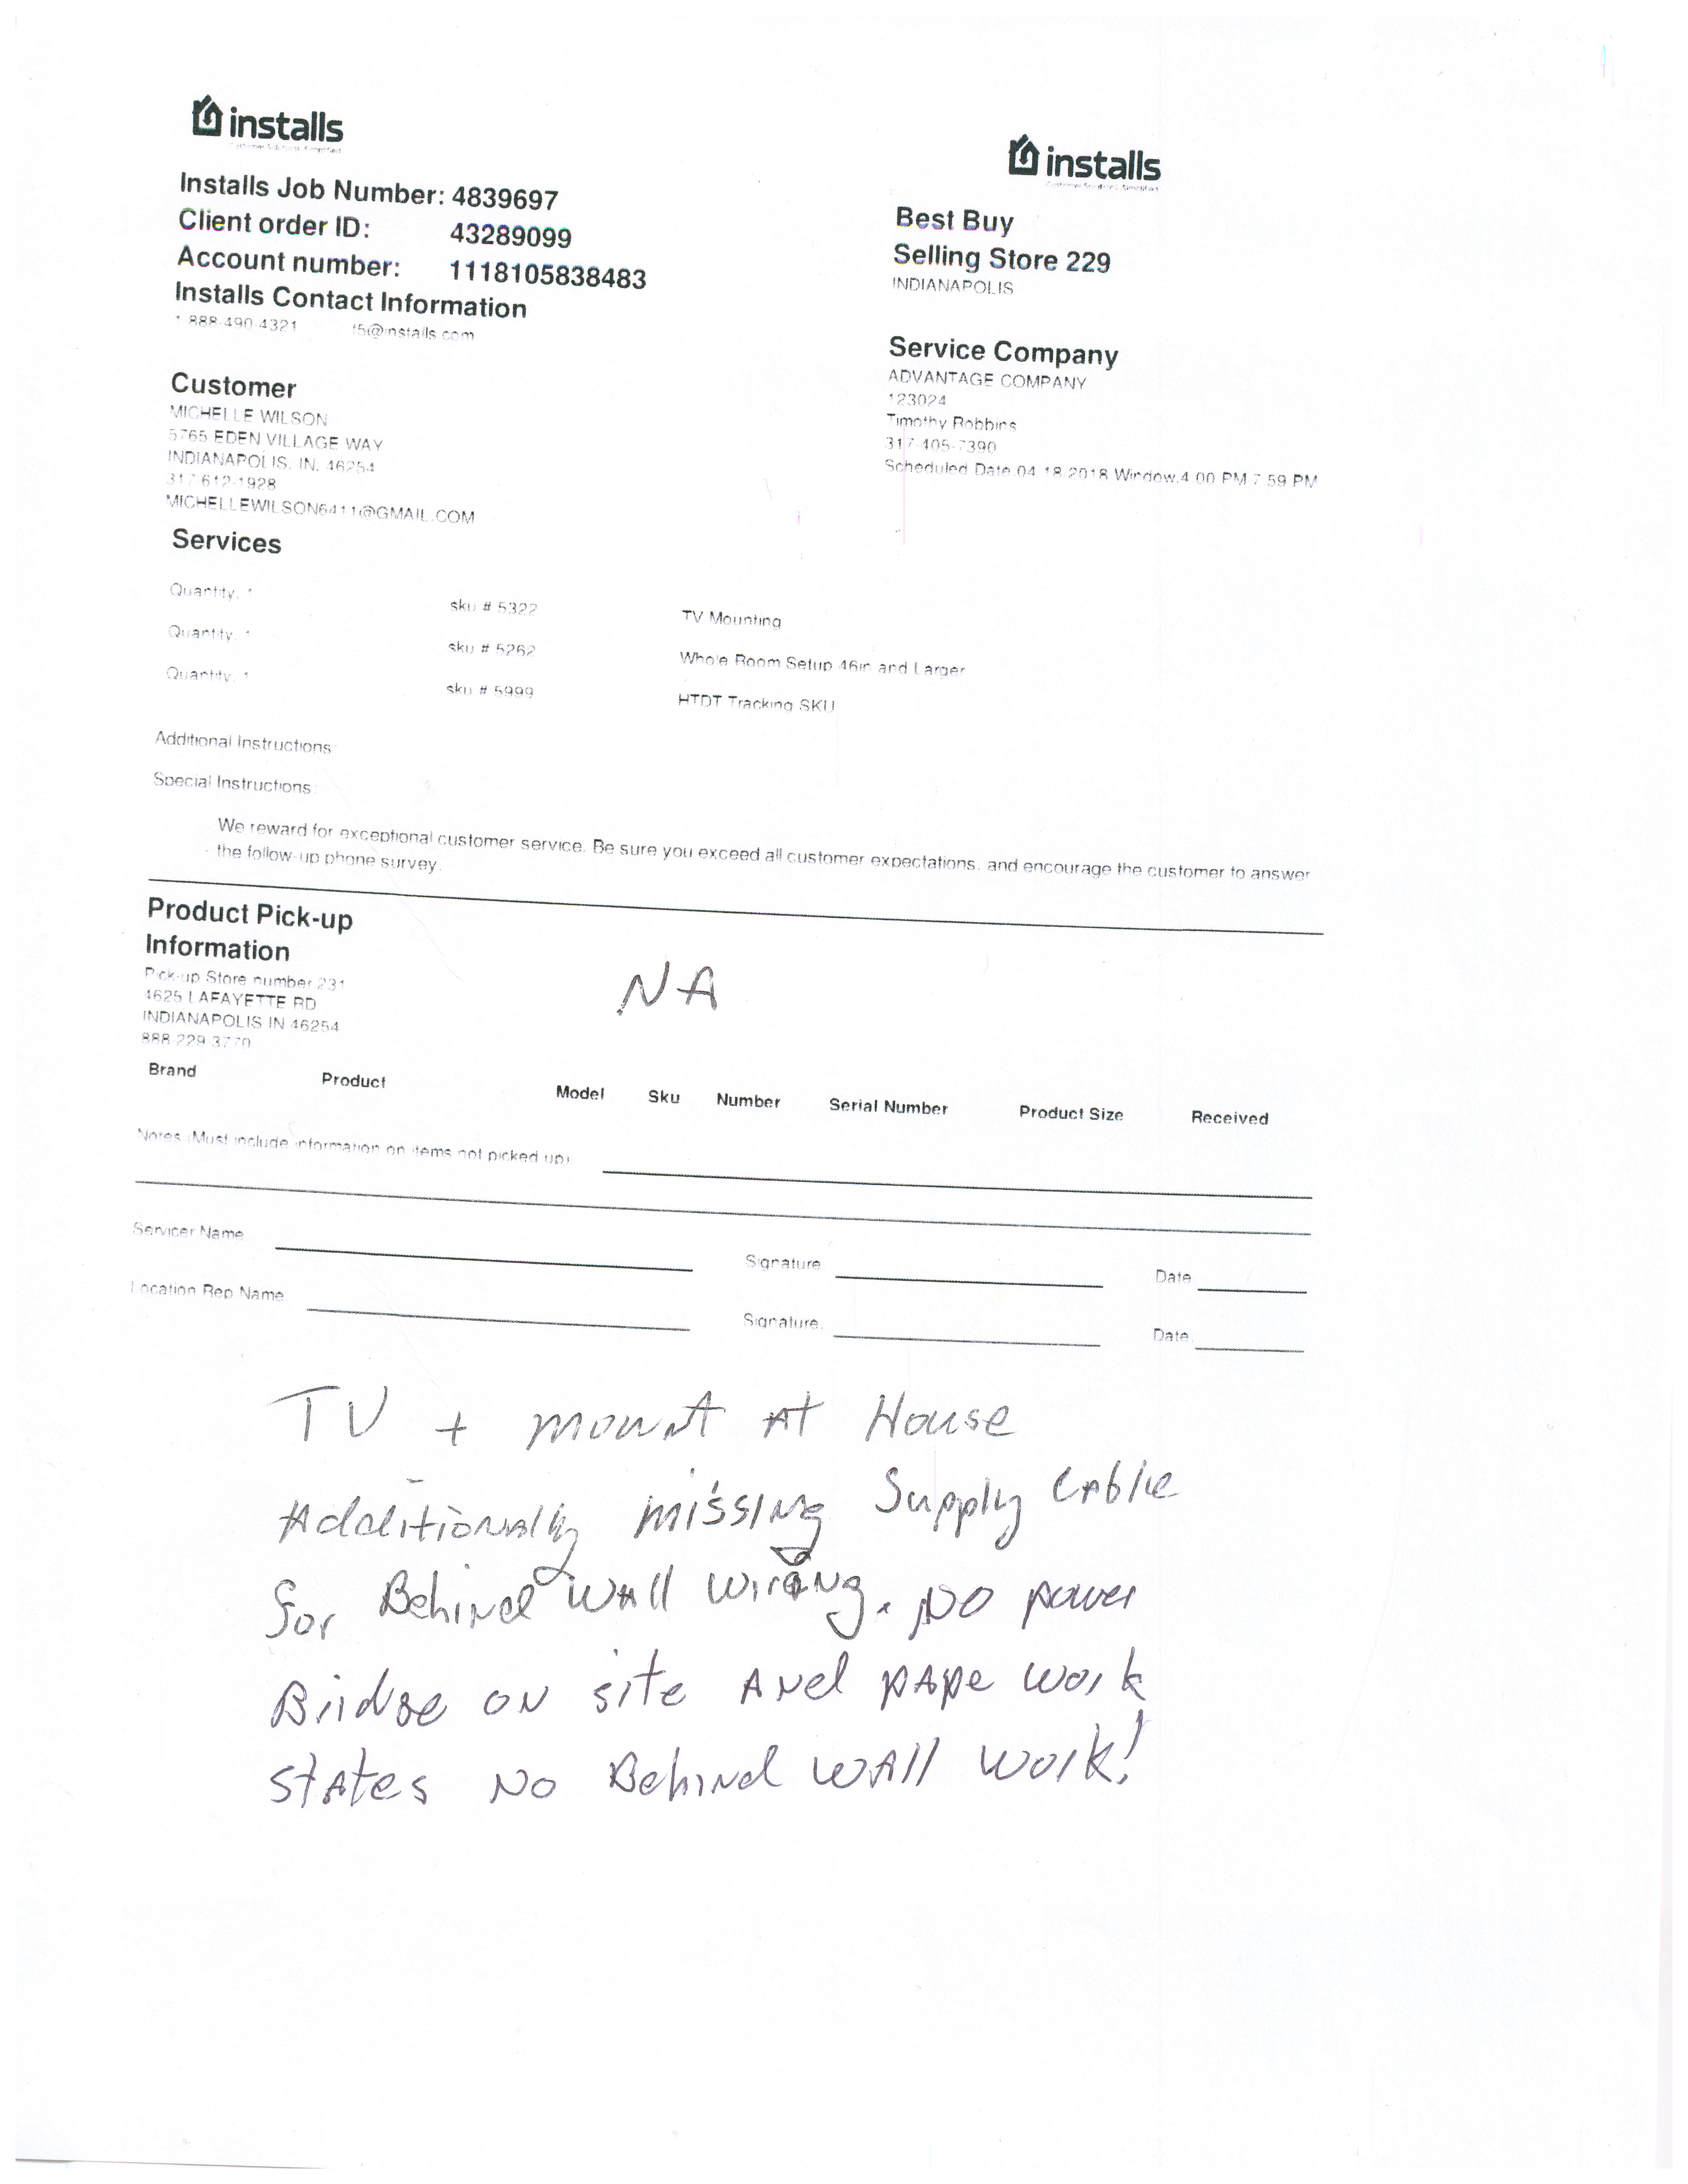 installs
installs
Installs Job Number: 4839697
Client order ID: 43289099
Account number: 1118105838483
Installs Contact Information
1 888-490-4321 @installs.com
Best Buy
Selling Store 229
INDIANAPOLIS
Service Company
ADVANTAGE COMPANY
123024
Timothy Robbins
317-405-7390
Scheduled Date 04 18 2018 Window 4 00 PM 7 59 PM
Customer
MICHELLE WILSON
5765 EDEN VILLAGE WAY
INDIANAPOLIS, IN, 46254
317 612-1928
MICHELLEWILSON6411@GMAIL.COM
Services
Quantity. 1 sku # 5322 TV Mounting
Quantity. 1 sku # 5262 Whole Room Setup 46in and Larger
Quantity. 1 sku # 5999 HTDT Tracking SKU
Additional Instructions:
Special Instructions:
We reward for exceptional customer service. Be sure you exceed all customer expectations, and encourage the customer to answer
the follow-up phone survey.
Product Pick-up
Information
NA
Pick-up Store number 231
4625 LAFAYETTE RD
INDIANAPOLIS IN 46254
888-229-3770
Brand Product Model Sku Number Serial Number Product Size Received
Notes (Must include information on items not picked up)
Servicer Name Signature Date
Location Rep Name Signature. Date
TV + mount At House
Additionally missing Supply Cable
for Behind Wall wiring. No power
Bridge on site And pape work
states No Behind WAll work!